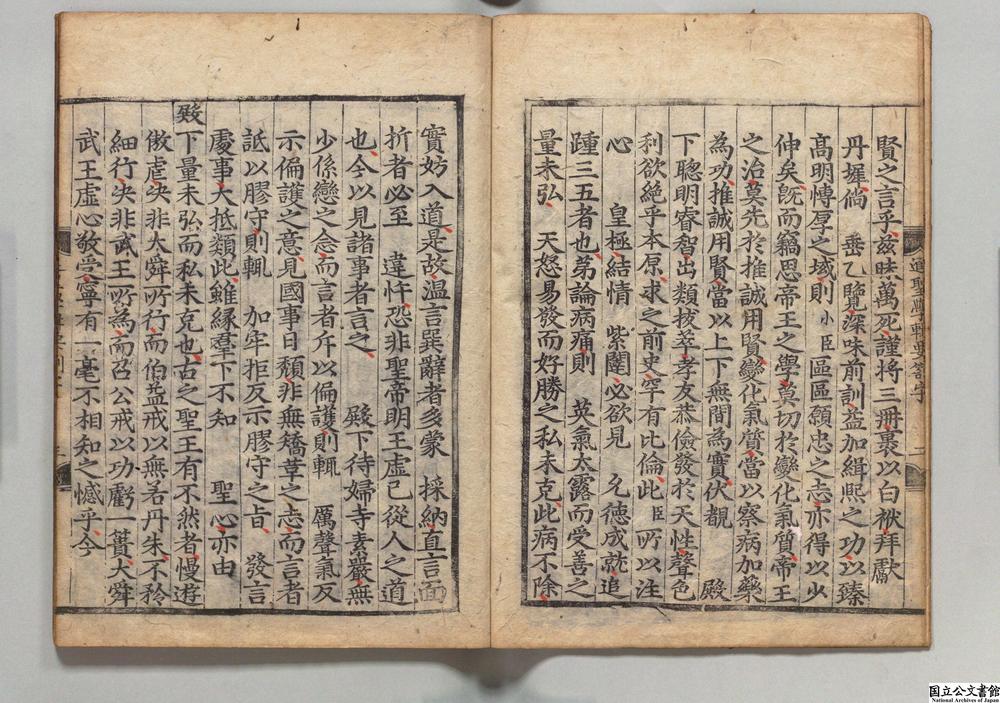 賢之言乎茲昧萬死謹將三冊裹以白袱拜獻
丹墀倘 垂乙覽深味前訓益加緝熙之功以臻
髙明愽厚之域則小臣區區願忠之志亦得以少
伸矣旣而竊思帝王之學莫切於變化氣質帝王
之治莫先於推誠用賢變化氣質當以察病加藥
為功推誠用賢當以上下無間為實伏覩 殿
下聦明睿智出類拔萃孝友恭儉發於天性聲色
利欲絶乎本原求之前史罕有比倫此臣所以注
心 皇極結情 紫闥必欲見 允德成就追
踵三五者也弟論病痛則 英氣太露而受善之
量未弘 天怒易發而好勝之私未克此病不除
實妨入道是故温言巽辭者多蒙 採納直言面
折者必至 違忤恐非聖帝明王虚己從人之道
也今以見諸事者言之 殿下待婦寺素嚴無
少係戀之念而言者斥以偏護則輒 厲聲氣反
示偏護之意見國事日頹非無矯革之志而言者
詆以膠守則輒 加牢拒反示膠守之旨 發言
處事大抵類此雖縁羣下不知 聖心亦由
殿下量未弘而私未克也古之聖王有不然者慢遊
傲虐決非大舜所行而伯益戒以無若丹朱不矜
細行決非武王所為而召公戒以功虧一簣大舜
武王虚心敬受寧有一毫不相知之憾乎今
国立公文書館
National Archives of Japan